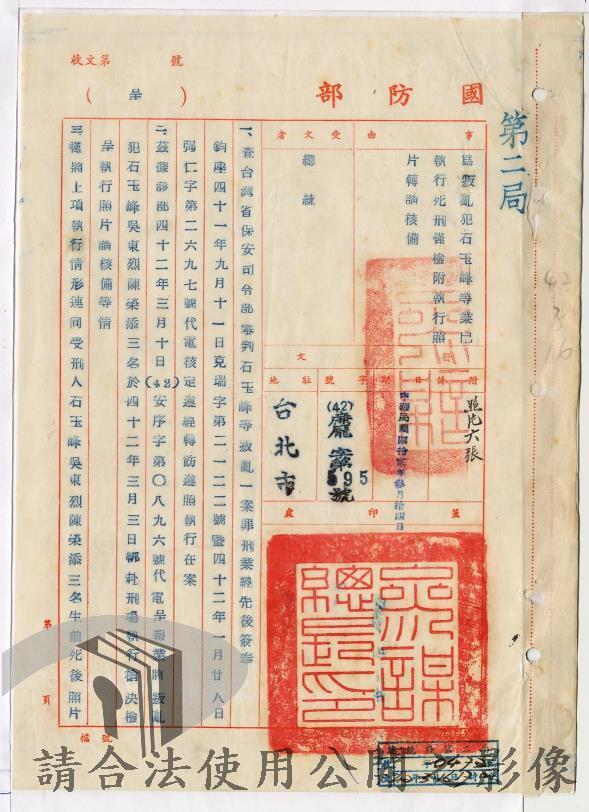 國防部
(呈)
收文第 號
第二局
事由
為叛亂犯石玉峰等業已
執行死刑謹檢附執行照
片轉請核備
受文者
總統
附件
照片六張
日期
中華民國四十二年參月拾四日
字號
(42)
595號
駐地
台北市
蓋印處
參謀總長印
一、查台灣省保安司令部審判石玉峰等叛亂一案罪刑業經先後簽奉
鈞座四十一年九月十一日克瑞字第二一二二號暨四十二年一月廿八日
彌仁字第二六九七號代電核定遵經轉飭遵照執行在案
二、茲據該部四十二年三月十日(42)安序字第〇八九六號代電呈報業將叛亂
犯石玉峰吳東烈陳榮添三名於四十二年三月三日綁赴刑場執行槍決檢
呈執行照片請核備等情
三、謹將上項執行情形連同受刑人石玉峰吳東烈陳榮添三名生前死後照片
第 頁
檔號
請合法使用公開 影像